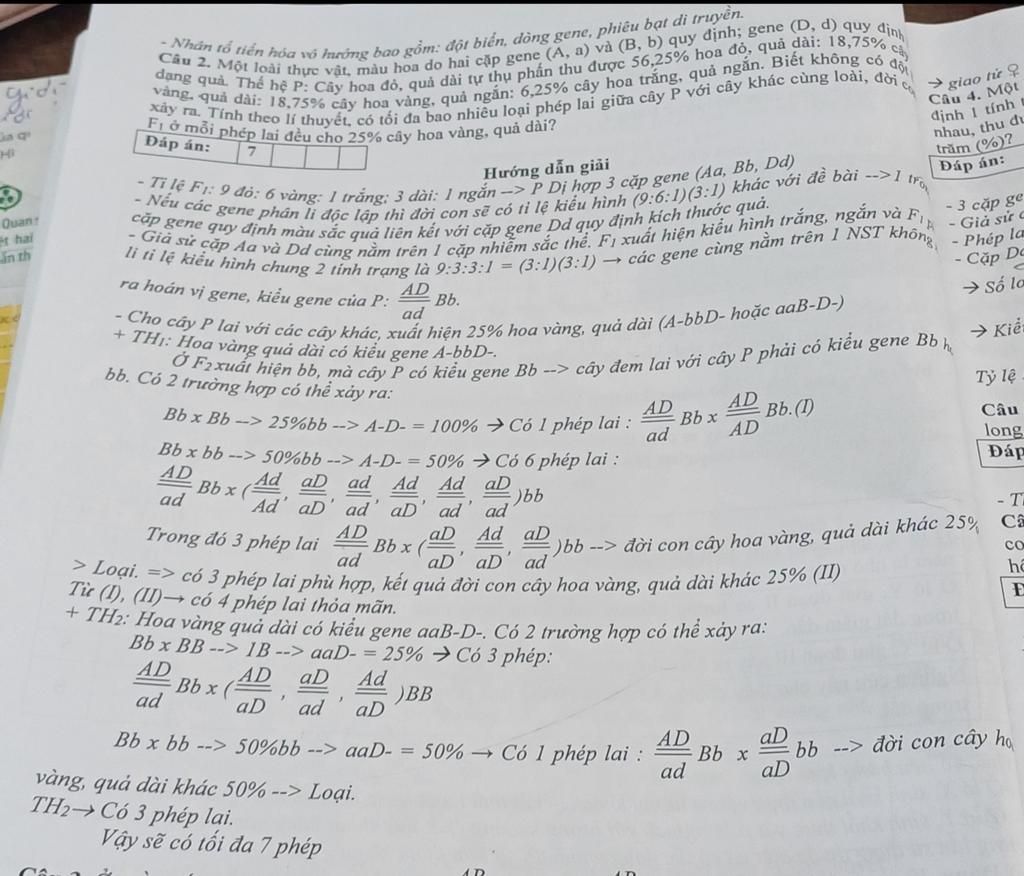 - Nhân tố tiến hóa vô hướng bao gồm: đột biến, dòng gene, phiêu bạt di truyền.
Câu 2. Một loài thực vật, màu hoa do hai cặp gene (A, a) và (B, b) quy định; gene (D, d) quy định
dạng quả. Thế hệ P: Cây hoa đỏ, quả dài tự thụ phấn thu được 56,25% hoa đỏ, quả dài: 18,75% cây
vàng, quả dài: 18,75% cây hoa vàng, quả ngắn: 6,25% cây hoa trắng, quả ngắn. Biết không có đột
xảy ra. Tính theo lí thuyết, có tối đa bao nhiêu loại phép lai giữa cây P với cây khác cùng loài, đời co
F₁ ở mỗi phép lai đều cho 25% cây hoa vàng, quả dài?
Đáp án: 7
Hướng dẫn giải
- Tỉ lệ F₁: 9 đỏ: 6 vàng: 1 trắng; 3 dài: 1 ngắn --> P Dị hợp 3 cặp gene (Aa, Bb, Dd)
- Nếu các gene phân li độc lập thì đời con sẽ có tỉ lệ kiểu hình (9:6:1)(3:1) khác với đề bài -->1 tro
cặp gene quy định màu sắc quả liên kết với cặp gene Dd quy định kích thước quả.
- Giả sử cặp Aa và Dd cùng nằm trên 1 cặp nhiễm sắc thể. F₁ xuất hiện kiểu hình trắng, ngắn và F₁
li tỉ lệ kiểu hình chung 2 tính trạng là 9:3:3:1 = (3:1)(3:1) → các gene cùng nằm trên 1 NST không
ra hoán vị gene, kiểu gene của P: AD/ad Bb.
- Cho cây P lai với các cây khác, xuất hiện 25% hoa vàng, quả dài (A-bbD- hoặc aaB-D-)
+ TH₁: Hoa vàng quả dài có kiểu gene A-bbD-.
Ở F₂ xuất hiện bb, mà cây P có kiểu gene Bb --> cây đem lai với cây P phải có kiểu gene Bb h
bb. Có 2 trường hợp có thể xảy ra:
Bb x Bb --> 25%bb --> A-D- = 100% → Có 1 phép lai : AD/ad Bb x AD/AD Bb.(I)
Bb x bb --> 50%bb --> A-D- = 50% → Có 6 phép lai :
AD/ad Bb x (Ad/Ad, aD/aD, ad/ad, Ad/aD, Ad/ad, aD/ad)bb
Trong đó 3 phép lai AD/ad Bb x (aD/aD, Ad/aD, aD/ad)bb --> đời con cây hoa vàng, quả dài khác 25%
> Loại. => có 3 phép lai phù hợp, kết quả đời con cây hoa vàng, quả dài khác 25% (II)
Từ (I), (II)→ có 4 phép lai thỏa mãn.
+ TH₂: Hoa vàng quả dài có kiểu gene aaB-D-. Có 2 trường hợp có thể xảy ra:
Bb x BB --> 1B --> aaD- = 25% → Có 3 phép:
AD/ad Bb x (AD/aD, aD/ad, Ad/aD)BB
Bb x bb --> 50%bb --> aaD- = 50% → Có 1 phép lai : AD/ad Bb x aD/aD bb --> đời con cây ho
vàng, quả dài khác 50% --> Loại.
TH₂→ Có 3 phép lai.
Vậy sẽ có tối đa 7 phép
→ giao tử ♀
Câu 4. Một
định 1 tính
nhau, thu đ
trăm (%)?
Đáp án:
- 3 cặp ge
- Giả sử c
- Phép la
- Cặp D
→ Số lo
→ Kiể
Tỷ lệ
Câu
long
Đáp
- T
Câ
co
Quan